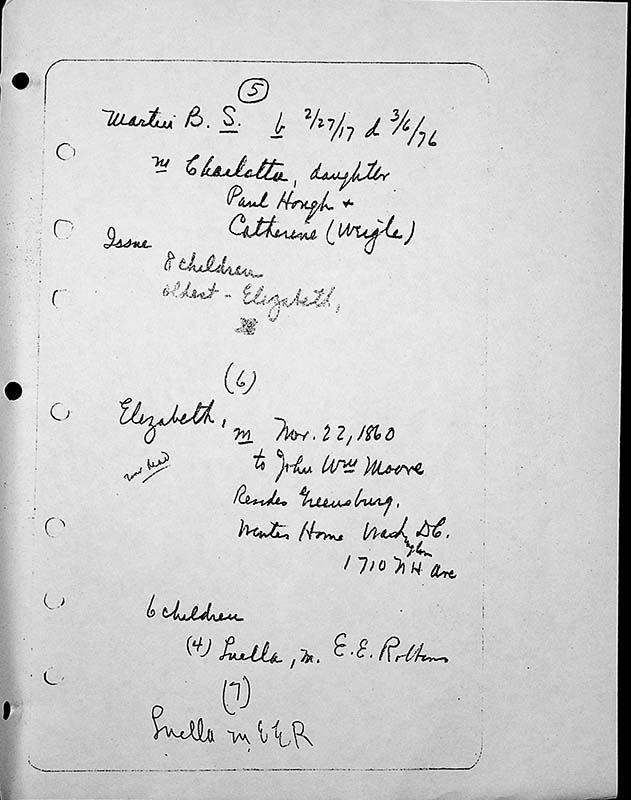 5
Martin B. S. b 2/27/17 d 3/6/76
m Charlotta, daughter
Paul Hough +
Catherine (Weigle)
Issue
8 children
oldest - Elizabeth,
(6)
Elizabeth, m Nov. 22, 1860
now dead
to John Wm Moore
Resides Greensburg.
Winter Home Washington D.C.
1710 N H Ave
6 children
(4) Luella, m. E. E. Robbins
(7)
Luella m E E R